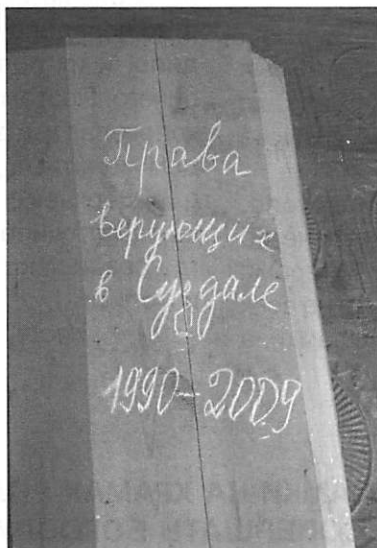 Права
верующих
в Суздале
1990-2009